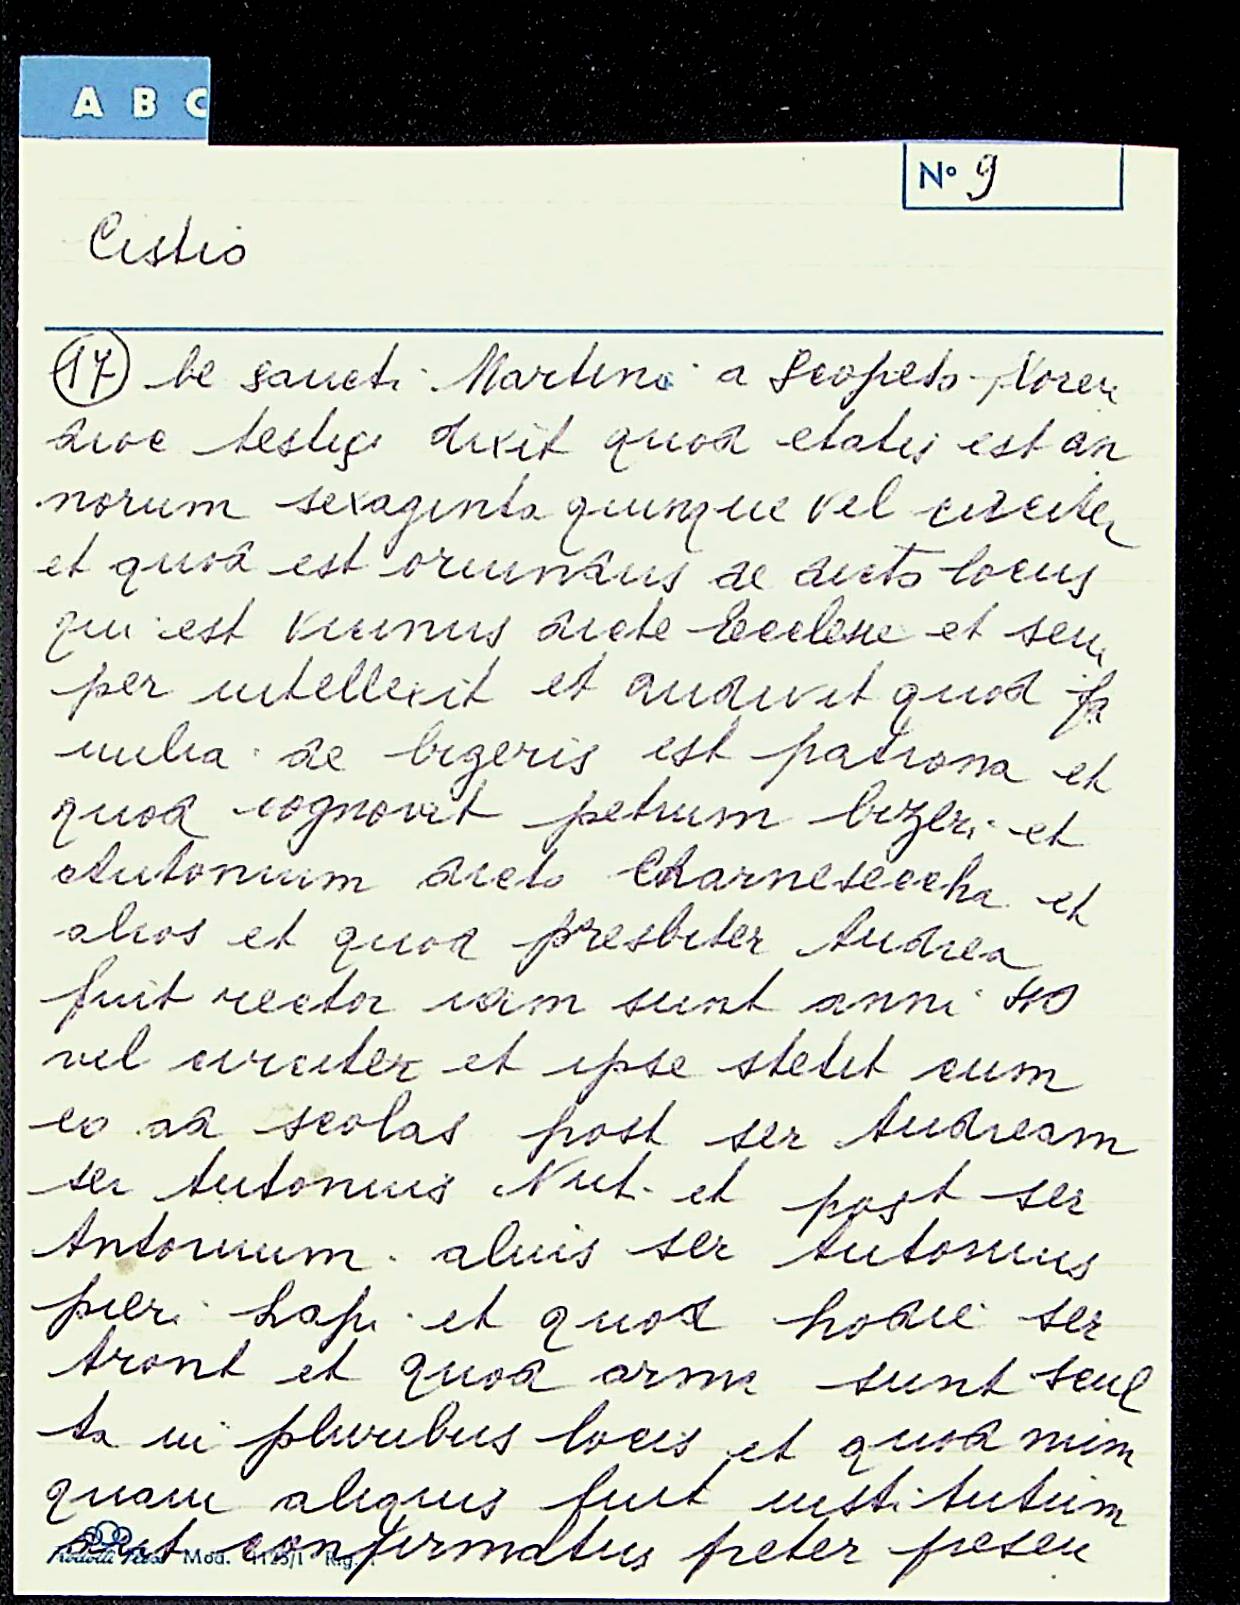 A B C
Nº 9
Cistio
(17) be sancti Martini a Scopeto floren
dioc testis dixit quod etatis est an
norum sexaginta quinque vel circiter
et quod est oriundus de dicto locus
qui est vicinus dicte Ecclesie et sem
per intellexit et audivit quod fa
milia de bizeris est patrona et
quod cognovit petrum bizeri et
Antonium dicto Charnesecha et
alios et quod presbiter Andrea
fuit rector iam sunt anni
vel circiter et ipse stetit cum
eo ad scolas post ser Andream
ser Antonius Nut. et post ser
Antonium. alius ser Antonius
pieri Lapi et quod hodie ser
et quod arma sunt scul
ta in pluribus locis et quod num
quam aliquis fuit institutum
aut confirmatus preter presen
Mod. 1125/1 Rig.